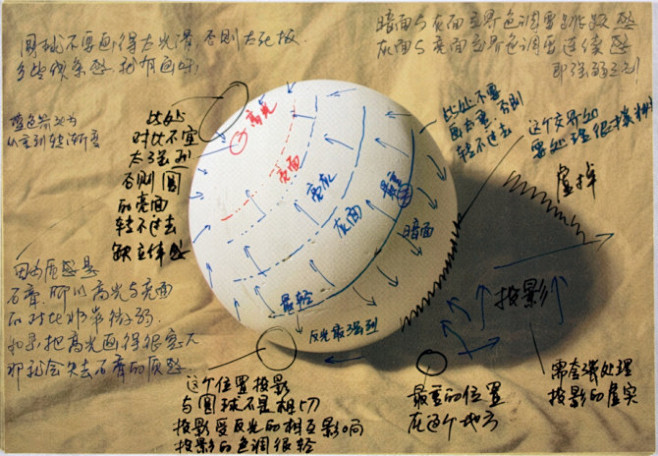 圆球不要画得太光滑 否则太死板
多些线条感. 才有画味
暗面与灰面交界色调要
灰面与亮面交界色调要连续些
即强弱之别
蓝色箭头为
从重到轻渐变
此处
对比不宜
太强烈
否则圆
的亮面
转不过去
缺立体感
高光
亮面
亮灰
灰面
最重
暗面
最轻
反光最强烈
此处不要
画太重, 否则
转不过去
这个交界处
要处理很模糊
虚掉
投影
因为质感是
石膏, 所以高光与亮面
的对比非常微弱.
如果把高光画得很突出
那就会失去石膏的质感.
这个位置投影
与圆球不是相切
投影受反光的相互影响
投影的色调很轻
最重的位置
在这个地方
需衰减处理
投影的虚实